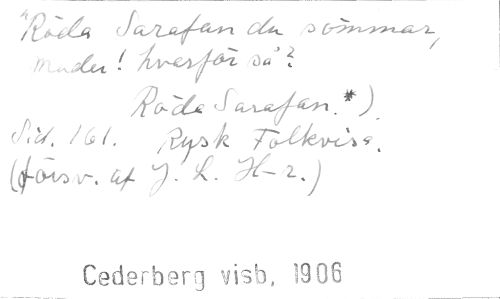 "Röda Sarafan du sömmar,
moder! hvarför så?
Röda Sarafan.*)
Sid. 161. Rysk Folkvisa.
(försv. af J. L. H-r.)
Cederberg visb, 1906